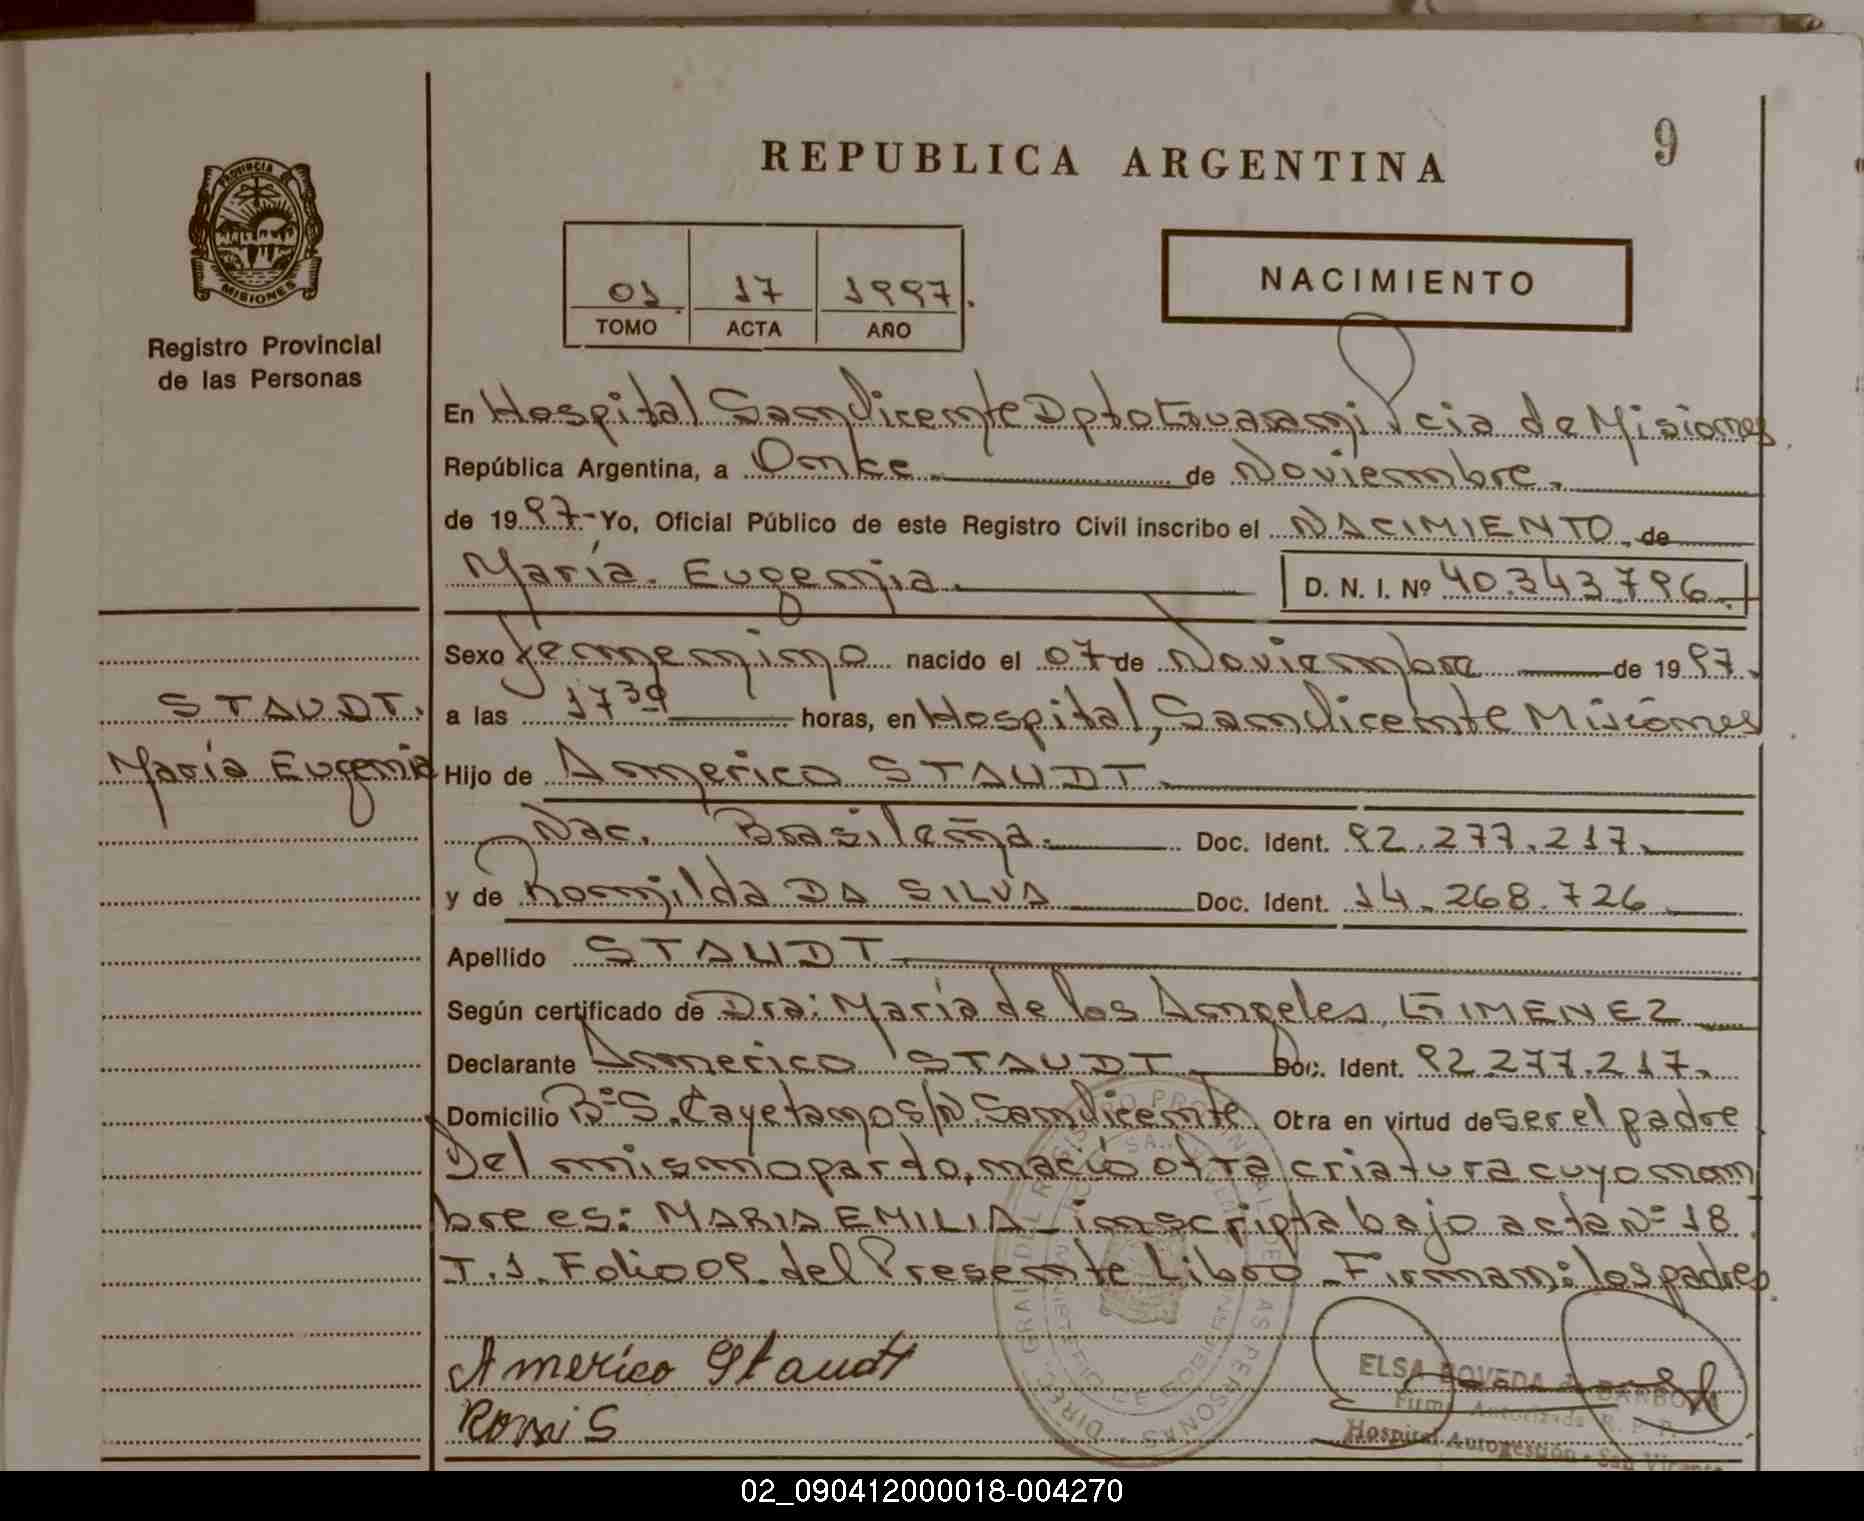 9
REPUBLICA ARGENTINA
PROVINCIA
MISIONES
Registro Provincial
de las Personas
01 17 1997.
TOMO ACTA AÑO
NACIMIENTO
En Hospital San Vicente Dpto Guarani Pcia de Misiones
República Argentina, a Once de Noviembre.
de 1997- Yo, Oficial Público de este Registro Civil inscribo el NACIMIENTO, de
María Eugenia. D. N. I. Nº 40.343.796.
Sexo femenino nacido el 07 de Noviembre de 1997.
STAUDT.
María Eugenia
a las 17 30 horas, en Hospital, San Vicente Misiones
Hijo de Americo STAUDT.
Nac. Brasileña. Doc. Ident. 92.277.217.
y de Romilda DA SILVA Doc. Ident. 14.268.726
Apellido STAUDT
Según certificado de Dra: María de los Angeles GIMENEZ
Declarante Americo STAUDT Doc. Ident. 92.277.217.
Domicilio Bº S. Cayetano S/N San Vicente Otra en virtud de ser el padre
Del mismo parto, nació otra criatura cuyo nom
bre es: MARIA EMILIA - inscripta bajo acta Nº 18
T.1. Folio 09 del Presente Libro - Firman: los padres
Americo Staudt
Romi S
ELSA BOVEDA de BARBOZA
Firma Autorizada R. P. P.
Hospital Autogestión - San Vicente
02_090412000018-004270